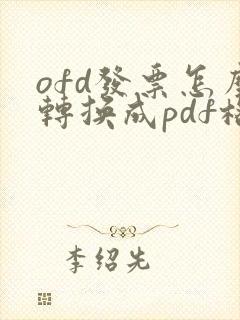 ofd發票怎
轉換成pdf
李绍先